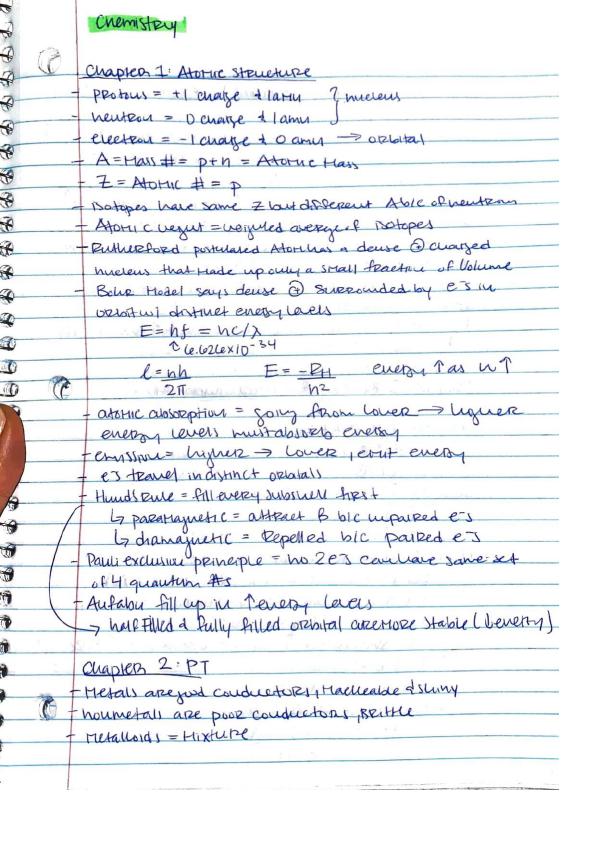 Chemistry
Chapter 1: Atomic Structure
- protons = +1 charge & 1amu } nucleus
- neutron = 0 charge & 1amu
- electron = -1 charge & 0 amu → orbital
- A = Mass # = p+n = Atomic Mass
- Z = Atomic # = p
- Isotopes have same Z but different A b/c of neutron
- Atomic weight = weighted average of isotopes
- Rutherford postulated Atom has a dense ⊕ charged
nucleus that made up only a small fraction of volume
- Bohr Model says dense ⊕ surrounded by e⁻s in
orbit w/ distinct energy levels
E = hf = hc/λ
↑ 6.626x10^-34
l = nh/2π E = -RH/n² energy ↑ as n ↑
- atomic absorption = going from lower → higher
energy levels must absorb energy
- emission = higher → lower, emit energy
- e⁻s travel in distinct orbitals
- Hunds rule = fill every subshell first
↳ paramagnetic = attract B b/c unpaired e⁻s
↳ diamagnetic = Repelled b/c paired e⁻s
- Pauli exclusion principle = no 2 e⁻s can have same set
of 4 quantum #s
- Aufabu fill up in ↑ energy levels
→ half filled & fully filled orbital are more stable (↓energy)
Chapter 2: PT
- Metals are good conductors, Malleable & shiny
- nonmetals are poor conductors, Brittle
- Metalloids = Mixture